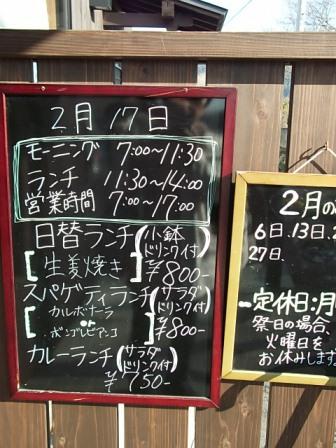 2月17日
モーニング 7:00〜11:30
ランチ 11:30〜14:00
営業時間 7:00〜17:00
日替ランチ(小鉢ドリンク付)
[生姜焼き] ¥800-
スパゲティランチ(サラダドリンク付)
[カルボナーラ
or
ボンゴレビアンコ] ¥800-
カレーランチ(サラダドリンク付)
¥750-
2月の
6日.13日.2
27日.
定休日:月
祭日の場合、
火曜日を
お休みします